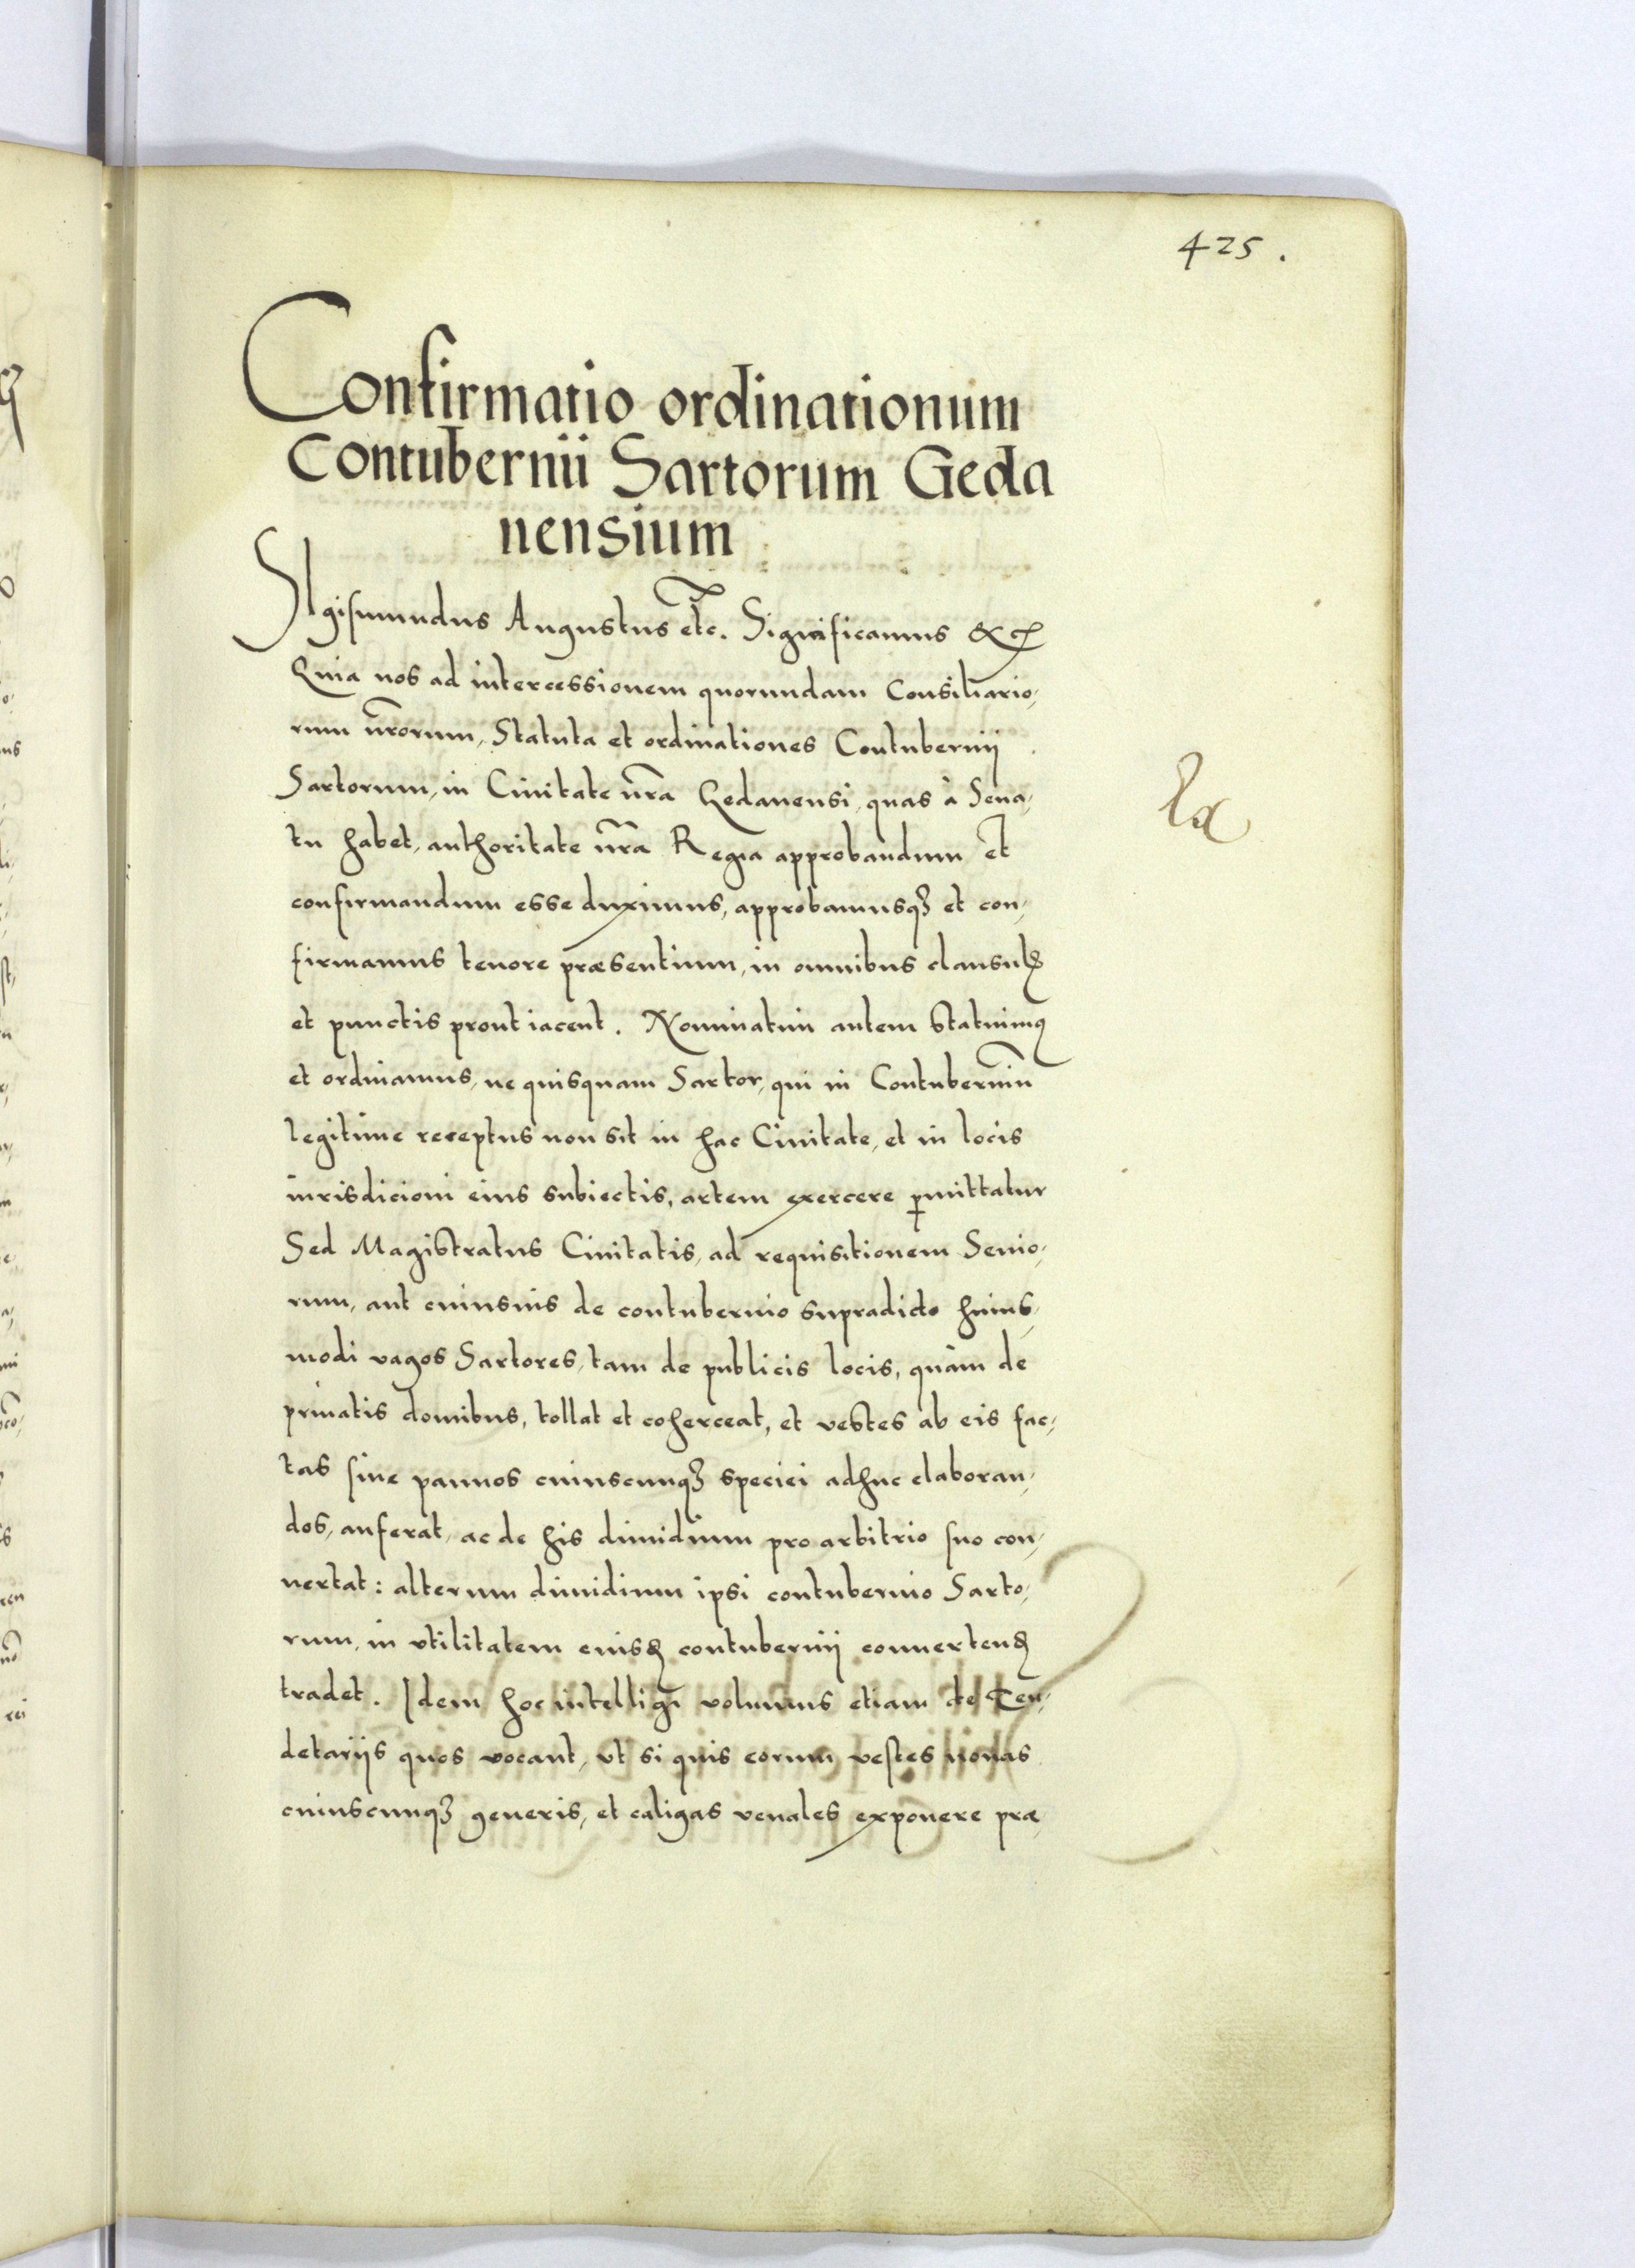 425.
Confirmatio ordinationum
Contubernii Sartorum Geda
nensium
SIgismundus Augustus etc. Significamus &c
Quia nos ad intercessionem quorundam Consiliario,
rum nr̃orum, Statuta et ordinationes Contubernij
Sartorum, in Ciuitate nr̃a Gedanensi, quas à Sena,
tu habet, authoritate nr̃a Regia approbandum et
confirmandum esse duximus, approbamusqꝫ et con,
firmamus tenore præsentium, in omnibus clausulꝭ
et punctis prout iacent. Nominatim autem statuimꝰ
et ordinamus, ne quisquam Sartor, qui in Contuberniũ
legitime receptus non sit in hac Ciuitate, et in locis
iurisdicioni eius subiectis, artem exercere ꝑmittatur
Sed Magistratus Ciuitatis, ad requisitionem Senio,
rum, aut cuiusuis de contubernio supradicto huius,
modi vagos Sartores, tam de publicis locis, quàm de
priuatis domibus, tollat et coherceat, et vestes ab eis fac,
tas siue pannos cuiuscunqꝫ speciei adhuc elaboran,
dos, auferat, ac de his dimidium pro arbitrio suo con,
uertat: alterum dimidium ipsi contubernio Sarto,
rum, in vtilitatem eiusꝺ contubernij conuertenꝺ
tradet. Idem hoc intelligi volumus etiam de Ten,
detarijs quos vocant, vt si quis eorum vestes nouas
cuiuscunqꝫ generis, et caligas venales exponere præ,